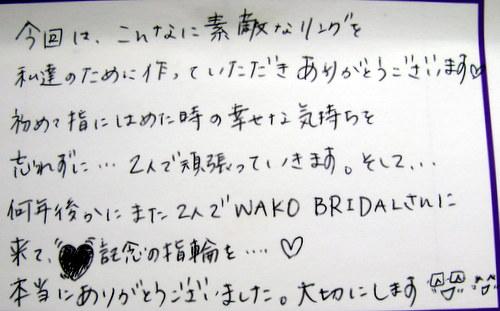 今回は、こんなに素敵なリングを
私達のために作っていただきありがとうございます♡
初めて指にはめた時の幸せな気持ちを
忘れずに… 2人で頑張っていきます。そして...
何年後かにまた2人でWAKO BRIDALさんに
来て、♥記念の指輪を…. ♡
本当にありがとうございました。大切にします